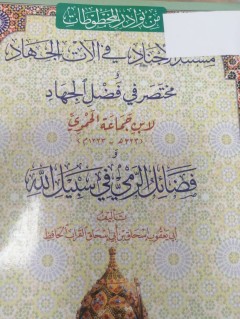 من نوادر المخطوطات
مستند الأجناد في آلات الجهاد
و
مختصر في فضل الجهاد
لابن جماعة الحموي
و
فضائل الرمي في سبيل الله
تأليف
أبي يعقوب إسحاق بن أبي إسحاق القراب الحافظ